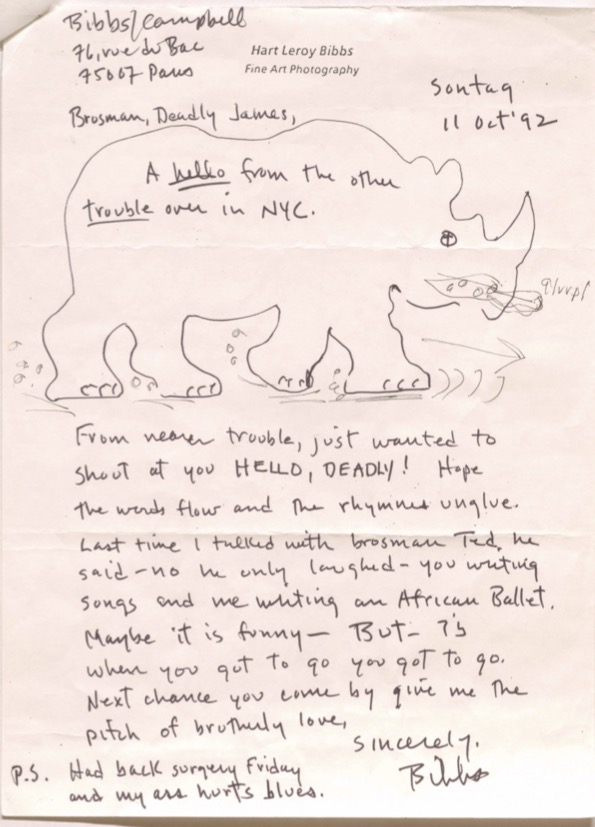 Bibbs/Campbell
76, rue du Bac
75007 Paris
Hart Leroy Bibbs
Fine Art Photography
Sontag
11 Oct '92
Brosman, Deadly James,
A hello from the other
trouble over in NYC.
glurp!
From nearer trouble, just wanted to
shout at you HELLO, DEADLY! Hope
the words flow and the rhymnes unglue.
Last time I talked with brosman Ted, he
said - no he only laughed - you writing
songs and me writing an African Ballet.
Maybe it is funny - But -
when you got to go you got to go.
Next chance you come by give me the
pitch of brotherly love,
Sincerely,
Bibbs
P.S. Had back surgery Friday
and my ass hurts blues.